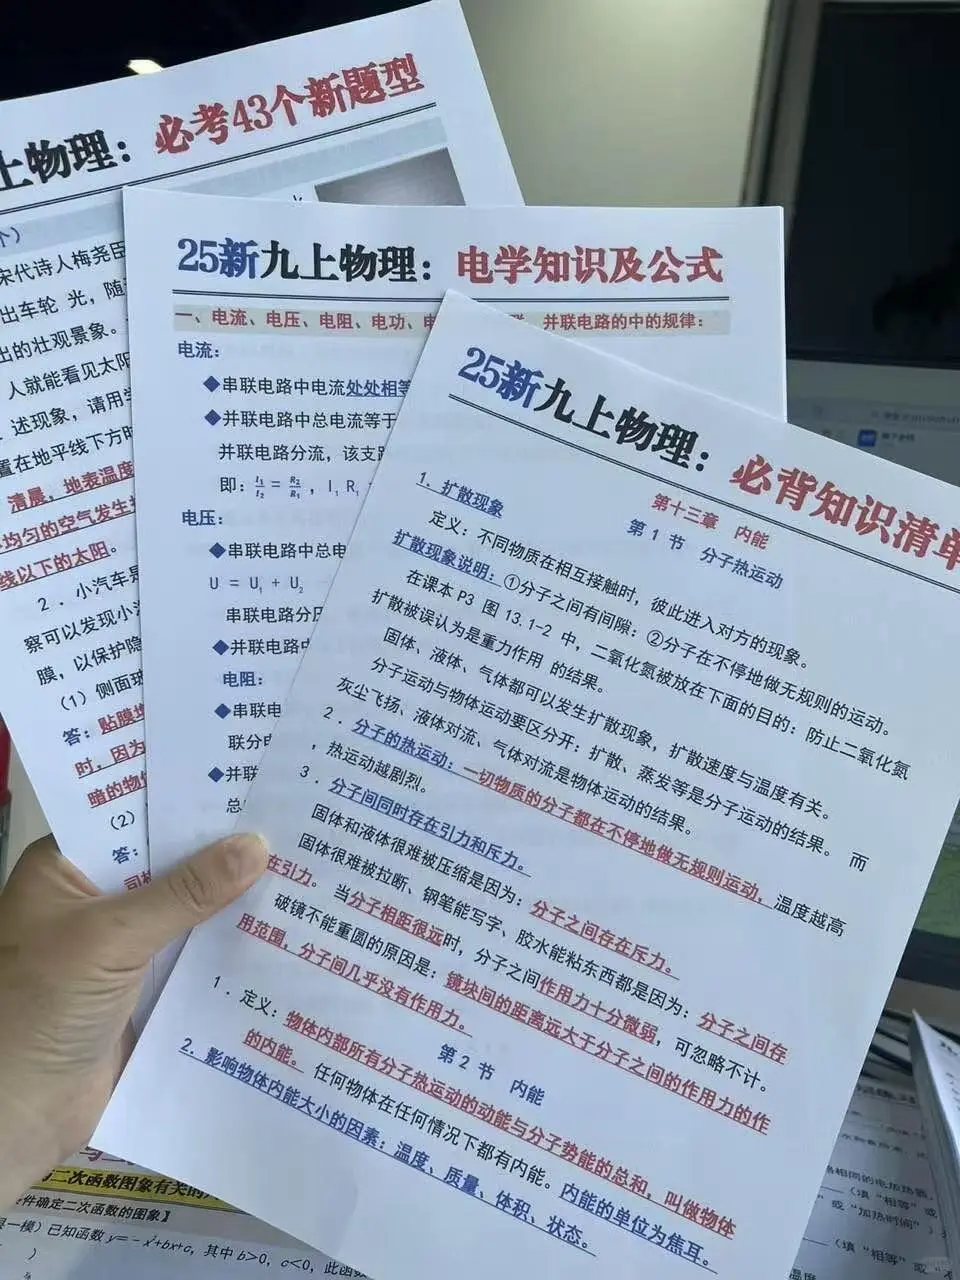 上物理：必考43个新题型
宋代诗人梅尧臣
出车轮 光，随
出的壮观景象。
人就能看见太阳
述现象，请用
置在地平线下方时
清晨，地表温度
均匀的空气发生
线以下的太阳。
2．小汽车是
察可以发现小
膜，以保护隐
（1）侧面玻
答：贴膜
时，因为
暗的物
（2）
答：
25新九上物理：电学知识及公式
一、电流、电压、电阻、电功、
并联电路的中的规律：
电流：
◆串联电路中电流处处相等
◆并联电路中总电流等于
并联电路分流，该支
即：I₁/I₂ = R₂/R₁ ，I₁R₁
电压：
◆串联电路中总电
U = U₁ + U₂
串联电路分压
◆并联电路中
电阻：
◆串联电
联分
◆并联
总
25新九上物理：必背知识清单
第十三章 内能
第 1 节 分子热运动
1．扩散现象
定义：不同物质在相互接触时，彼此进入对方的现象。
扩散现象说明：①分子之间有间隙；②分子在不停地做无规则的运动。
在课本 P3 图 13.1-2 中，二氧化氮被放在下面的目的：防止二氧化氮
扩散被误认为是重力作用 的结果。
固体、液体、气体都可以发生扩散现象，扩散速度与温度有关。
分子运动与物体运动要区分开：扩散、蒸发等是分子运动的结果。 而
灰尘飞扬、液体对流、气体对流是物体运动的结果。
2．分子的热运动：一切物质的分子都在不停地做无规则运动，温度越高
，热运动越剧烈。
3．分子间同时存在引力和斥力。
固体和液体很难被压缩是因为：分子之间存在斥力。
固体很难被拉断、钢笔能写字、胶水能粘东西都是因为：分子之间存
在引力。 当分子相距很远时，分子之间作用力十分微弱，可忽略不计。
破镜不能重圆的原因是：镜块间的距离远大于分子之间的作用力的作
用范围，分子间几乎没有作用力。
第 2 节 内能
1．定义：物体内部所有分子热运动的动能与分子势能的总和，叫做物体
的内能。 任何物体在任何情况下都有内能。内能的单位为焦耳。
2．影响物体内能大小的因素：温度、质量、体积、状态。
二次函数图象有关的
件确定二次函数的图象】
一模）已知函数 y=-x²+bx+c，其中 b>0，c<0，此函
）
相同的电加热器，
（填“相等”或
“加热时间”）
（填“相等”或“不